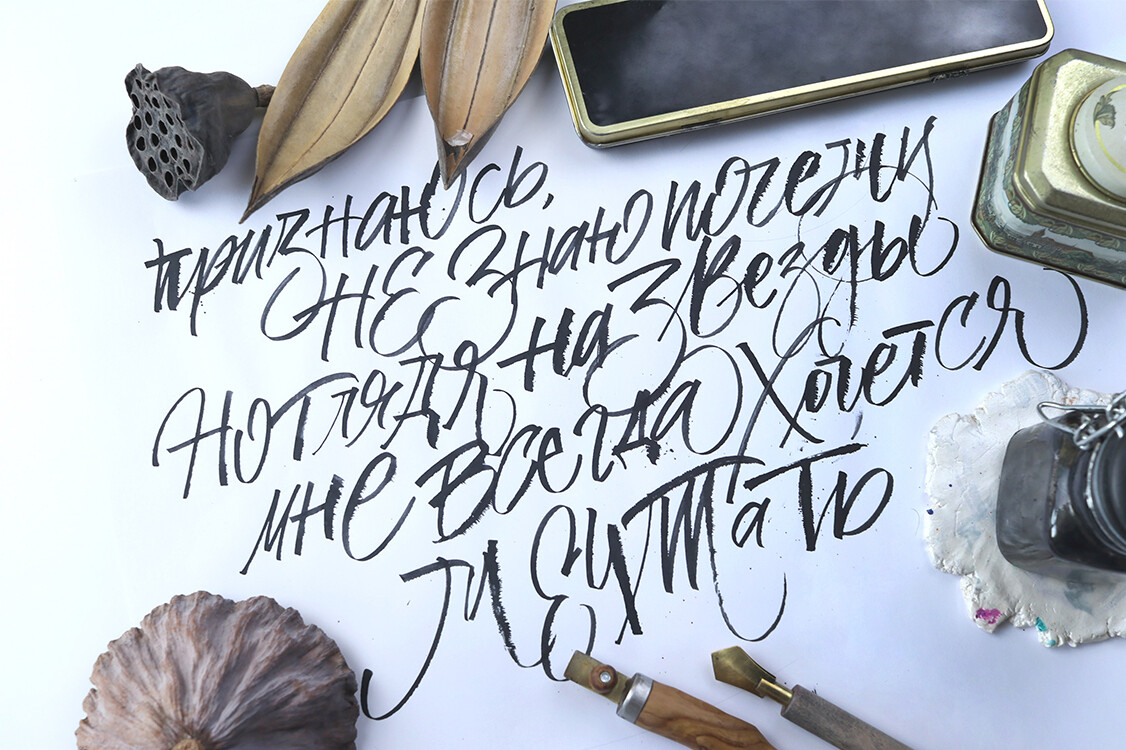 признаюсь,
не знаю почему
но глядя на звезды
мне всегда хочется
мечтать